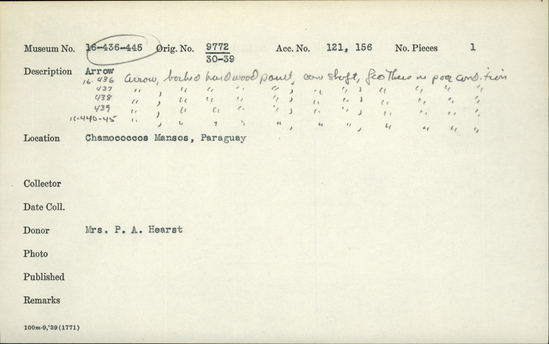 Museum No. 16-436-445 Orig. No. 9772 Acc. No. 121, 156 No. Pieces 1
30-39
Description Arrow
16-436 Arrow, barbed hardwood point, cane shaft, feathers in poor condition
437 " " " " " " " " " " "
438 " " " " " " " " " " "
439 " " " " " " " " " " "
16-440-45 " " " " " " " " " " "
Location Chamococcos Mansos, Paraguay
Collector
Date Coll.
Donor Mrs. P. A. Hearst
Photo
Published
Remarks
100m-9,'39(1771)